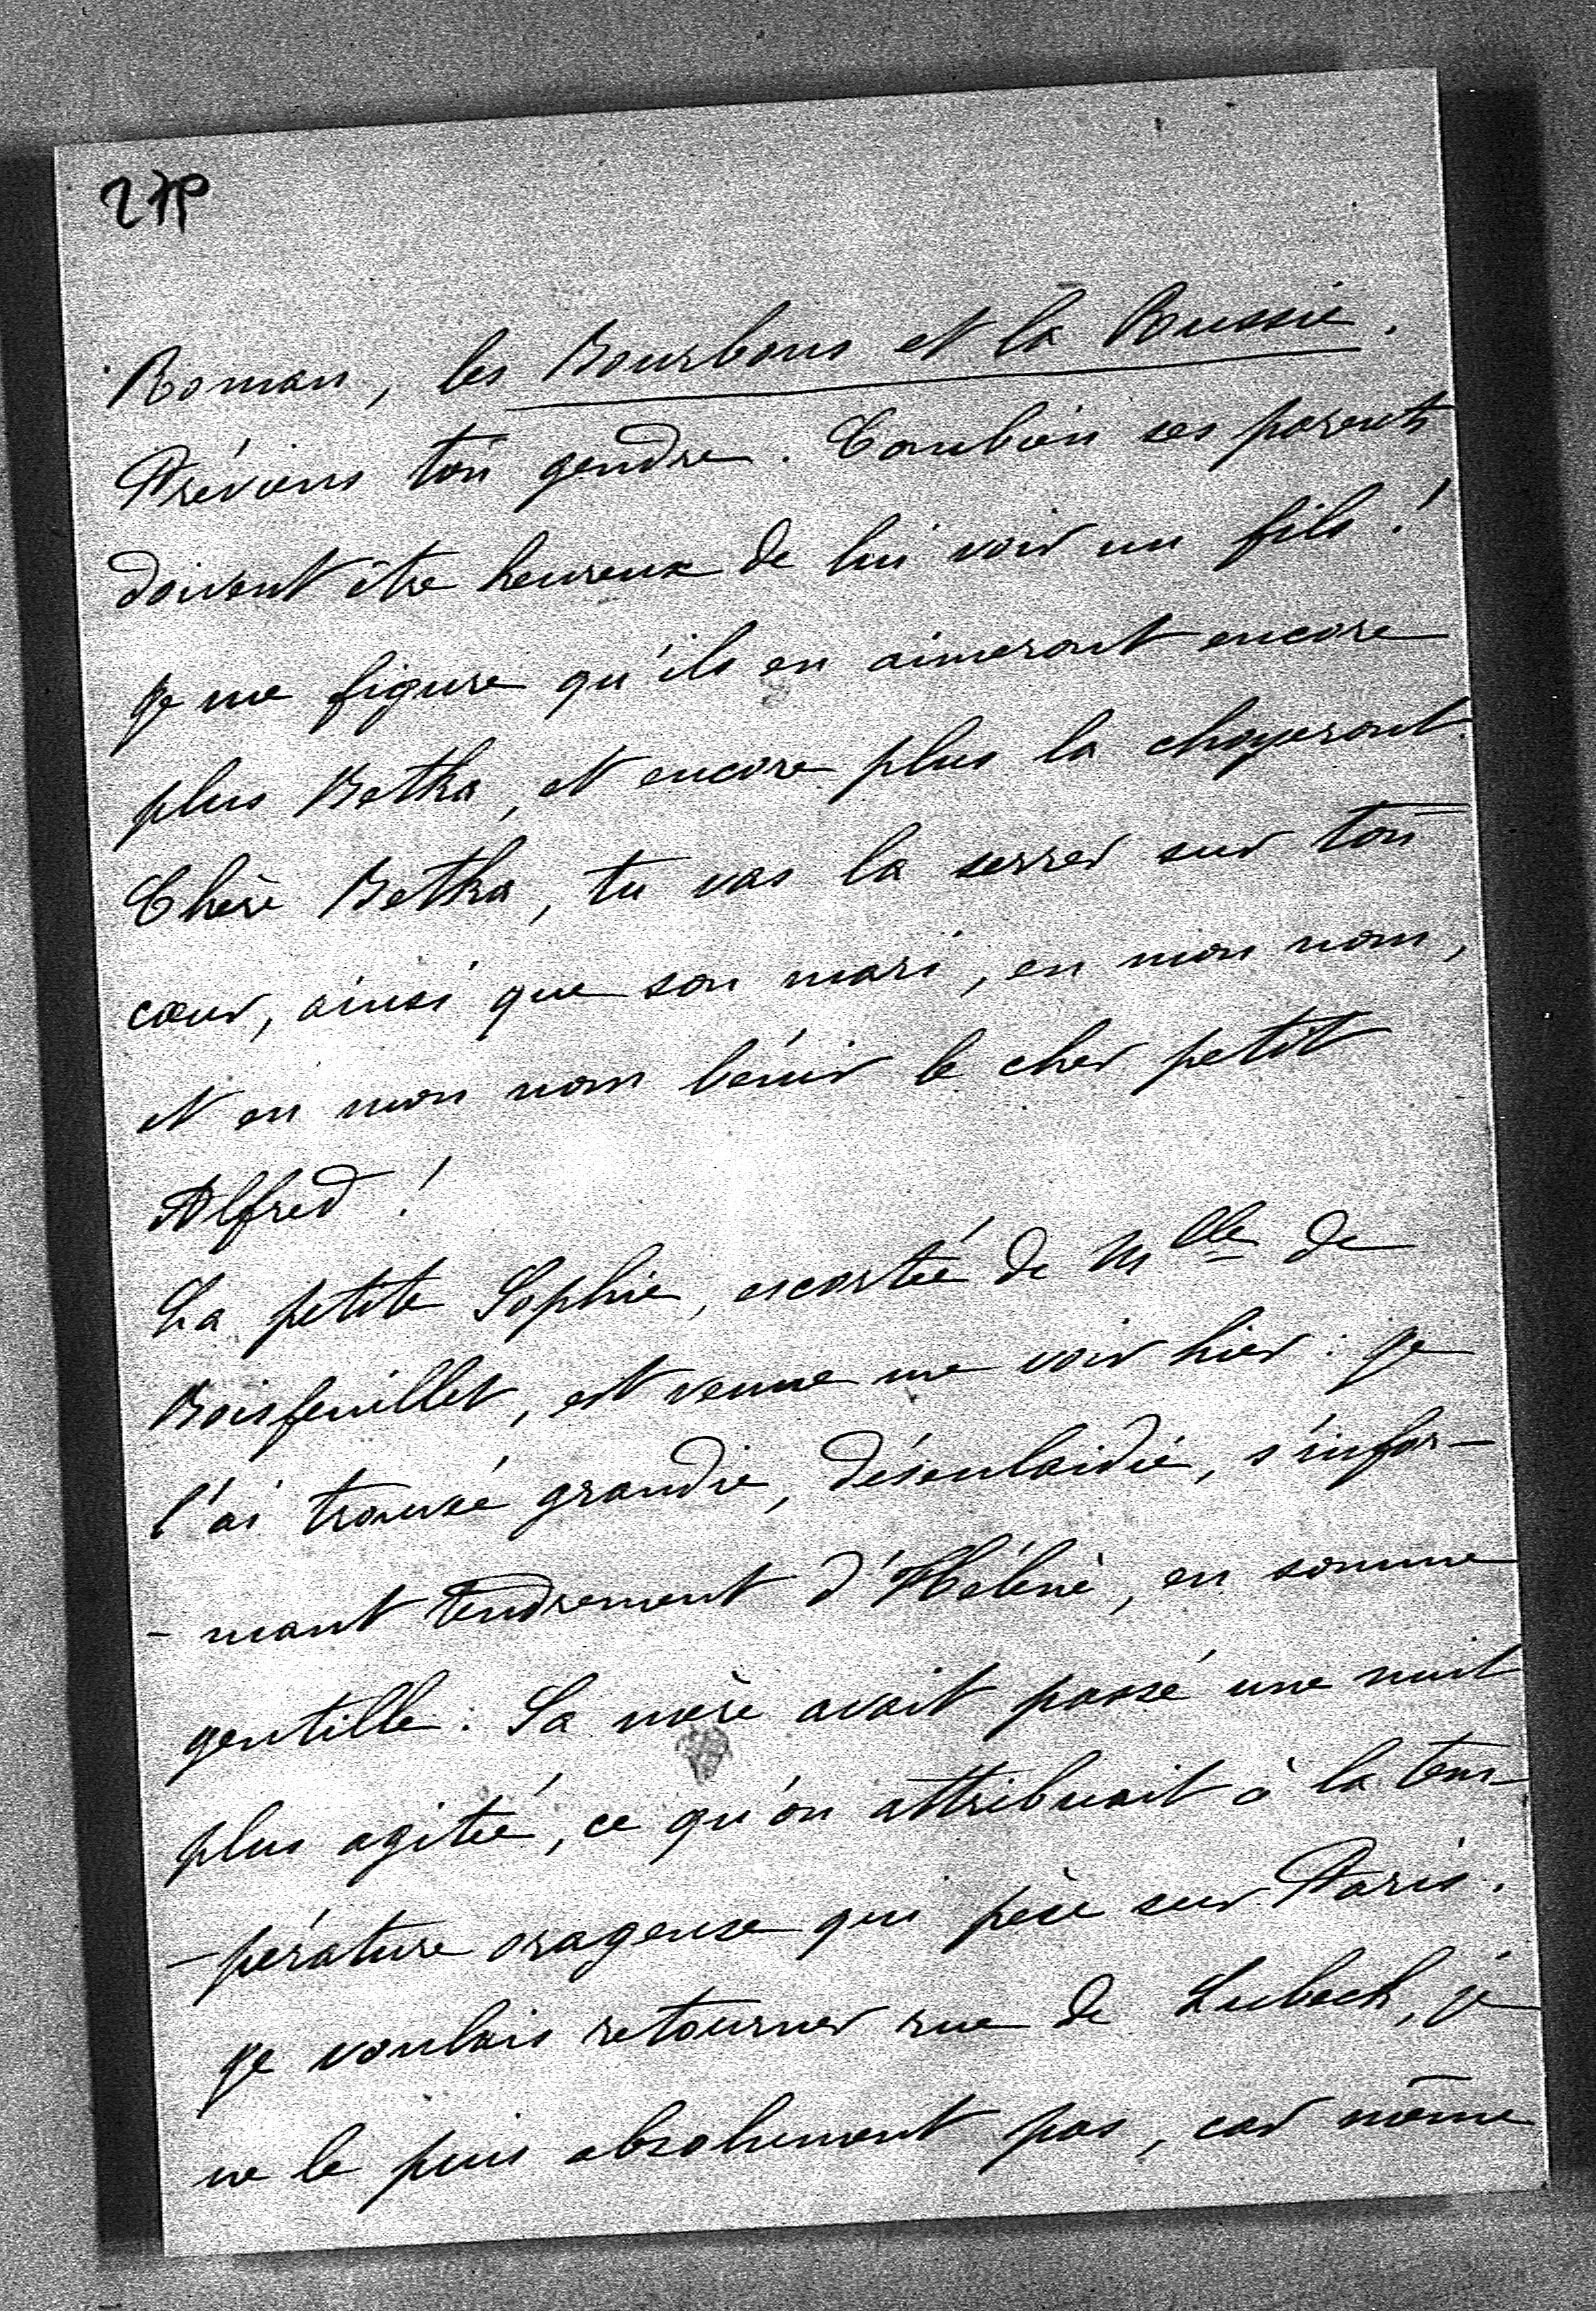 279
Roman, les Bourbons et la Russie.
Préviens ton gendre. Combien ses parents
doivent être heureux de lui voir un fils !
Je me figure qu'ils en aimeront encore
plus Betka, et encore plus la choyeront.
Chère Betka, tu vas la serrer sur ton
cœur, ainsi que son mari, en mon nom,
et en mon nom bénir le cher petit
Alfred !
La petite Sophie, escortée de Mlle de
Boisfeuillet, est venue me voir hier : je
l'ai trouvé grandie, désenlaidie, s'infor-
-mant tendrement d'Hélène, en somme
gentille. Sa mère avait passé une nuit
plus agitée, ce qu'on attribuait à la tem-
-pérature orageuse qui pèse sur Paris.
Je voulais retourner rue de Lubeck, je
ne le puis absolument pas, car même